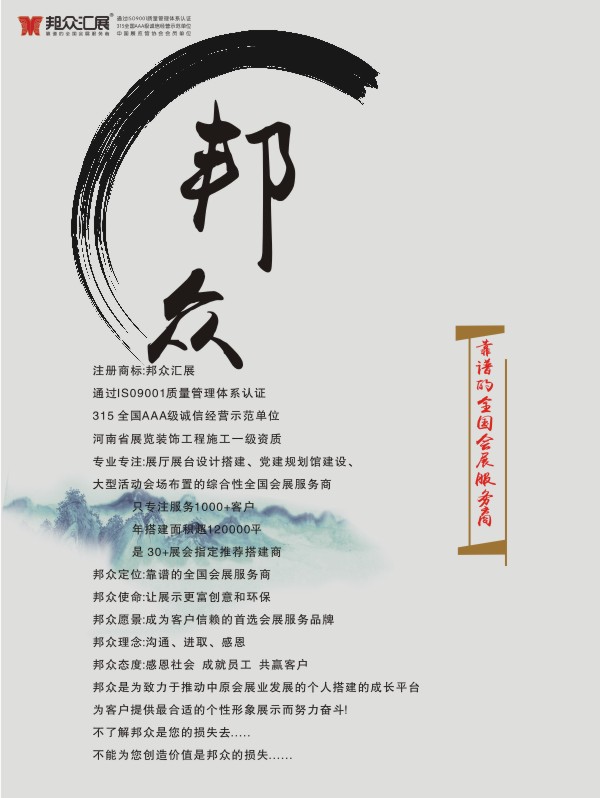 邦众汇展®
靠谱的全国会展服务商
通过ISO9001质量管理体系认证
315全国AAA级诚信经营示范单位
中国展览馆协会会员单位
邦
众
注册商标:邦众汇展
通过IS09001质量管理体系认证
315 全国AAA级诚信经营示范单位
河南省展览装饰工程施工一级资质
专业专注:展厅展台设计搭建、党建规划馆建设、
大型活动会场布置的综合性全国会展服务商
只专注服务1000+客户
年搭建面积超120000平
是 30+展会指定推荐搭建商
邦众定位:靠谱的全国会展服务商
邦众使命:让展示更富创意和环保
邦众愿景:成为客户信赖的首选会展服务品牌
邦众理念:沟通、进取、感恩
邦众态度:感恩社会 成就员工 共赢客户
邦众是为致力于推动中原会展业发展的个人搭建的成长平台
为客户提供最合适的个性形象展示而努力奋斗!
不了解邦众是您的损失去.....
不能为您创造价值是邦众的损失......
靠谱的全国会展服务商